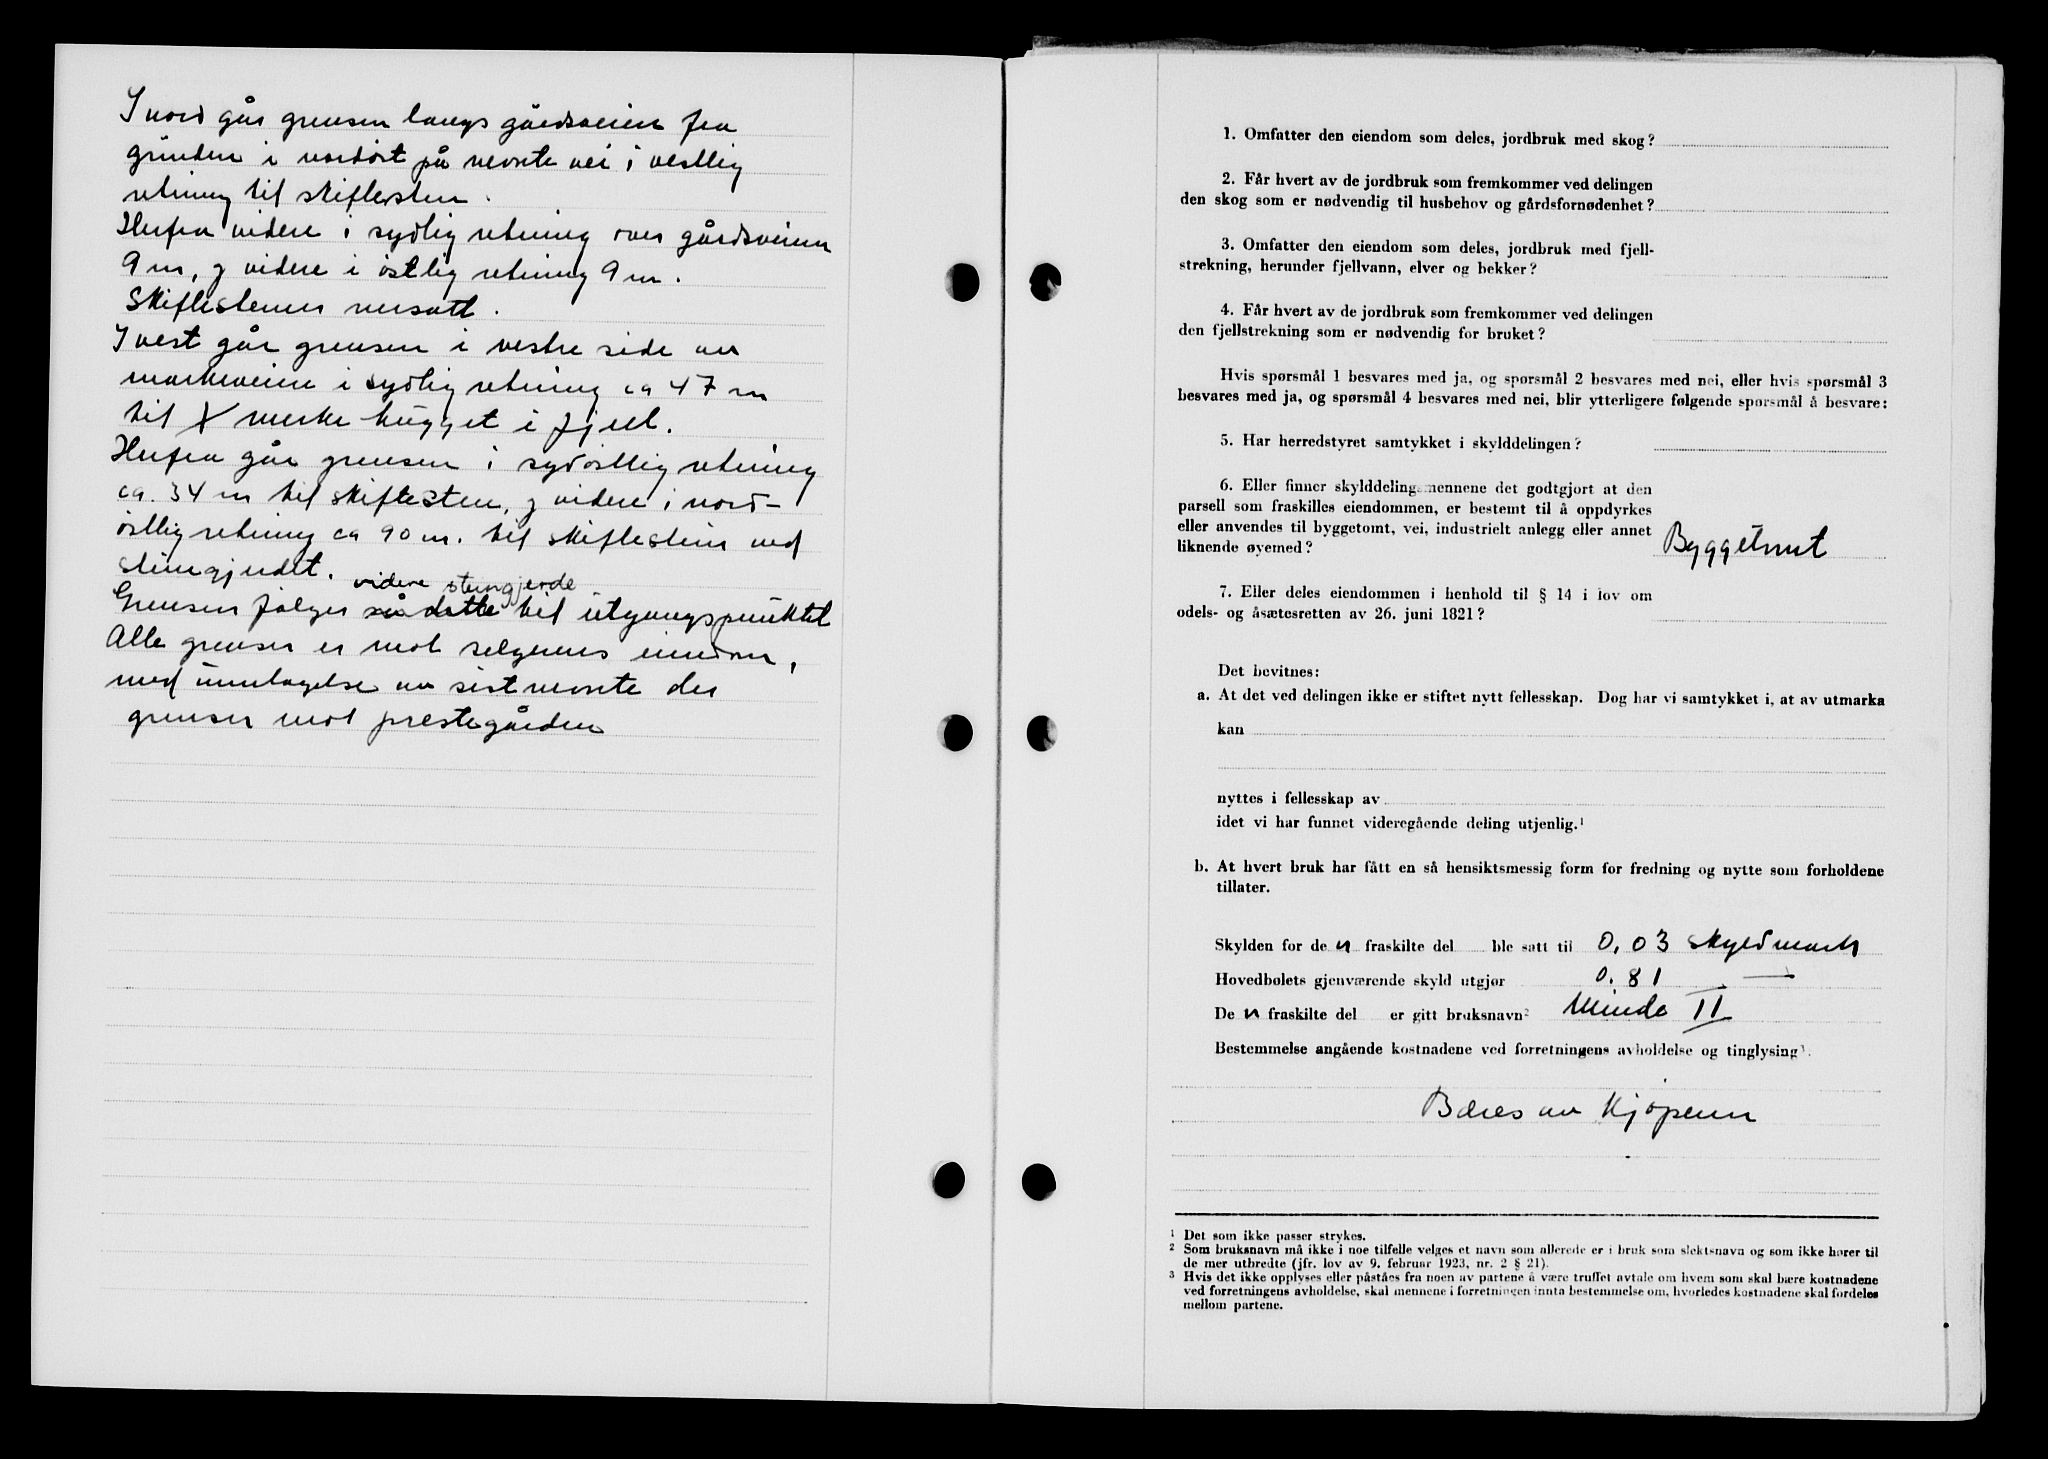 I nord går grensen langs gårdsveien fra
grinden i nordöst på nevnte vei i vestlig
retning til skiftesten.
Herfra videre i sydlig retning over gårdsveien
9 m, og videre i östlig retning 9 m.
Skiftestener nersatt.
I vest går grensen i vestre side av
markeveien i sydlig retning ca 47 m
til X merke hugget i fjell.
Herfra går grensen i sydöstlig retning
ca. 34 m til skiftesten, og videre i nord-
östlig retning ca 90 m. til skiftestein ved
steingjerdet.
videre steingjerde
Grensen fölger så dette til utgangspunktet
Alle grenser er mot selgerens eiendom,
med unntagelse av sistnevnte der
grenser mot prestegården
1. Omfatter den eiendom som deles, jordbruk med skog?
2. Får hvert av de jordbruk som fremkommer ved delingen
den skog som er nødvendig til husbehov og gårdsfornødenhet?
3. Omfatter den eiendom som deles, jordbruk med fjell-
strekning, herunder fjellvann, elver og bekker?
4. Får hvert av de jordbruk som fremkommer ved delingen
den fjellstrekning som er nødvendig for bruket?
Hvis spørsmål 1 besvares med ja, og spørsmål 2 besvares med nei, eller hvis spørsmål 3
besvares med ja, og spørsmål 4 besvares med nei, blir ytterligere følgende spørsmål å besvare:
5. Har herredstyret samtykket i skylddelingen?
6. Eller finner skylddelingsmennene det godtgjort at den
parsell som fraskilles eiendommen, er bestemt til å oppdyrkes
eller anvendes til byggetomt, vei, industrielt anlegg eller annet
liknende øyemed? Byggetomt
7. Eller deles eiendommen i henhold til § 14 i lov om
odels- og åsætesretten av 26. juni 1821?
Det bevitnes:
a. At det ved delingen ikke er stiftet nytt fellesskap. Dog har vi samtykket i, at av utmarka
kan
nyttes i fellesskap av
idet vi har funnet videregående deling utjenlig.¹
b. At hvert bruk har fått en så hensiktsmessig form for fredning og nytte som forholdene
tillater.
Skylden for de n fraskilte del ble satt til 0,03 skyldmark
Hovedbølets gjenværende skyld utgjør 0.81 —
De n fraskilte del er gitt bruksnavn² Minde II
Bestemmelse angående kostnadene ved forretningens avholdelse og tinglysing³.
Bæres av kjøperen
¹ Det som ikke passer strykes.
² Som bruksnavn må ikke i noe tilfelle velges et navn som allerede er i bruk som slektsnavn og som ikke hører til
de mer utbredte (jfr. lov av 9. februar 1923, nr. 2 § 21).
³ Hvis det ikke opplyses eller påståes fra noen av partene å være truffet avtale om hvem som skal bære kostnadene
ved forretningens avholdelse, skal mennene i forretningen innta bestemmelse om, hvorledes kostnadene skal fordeles
mellom partene.